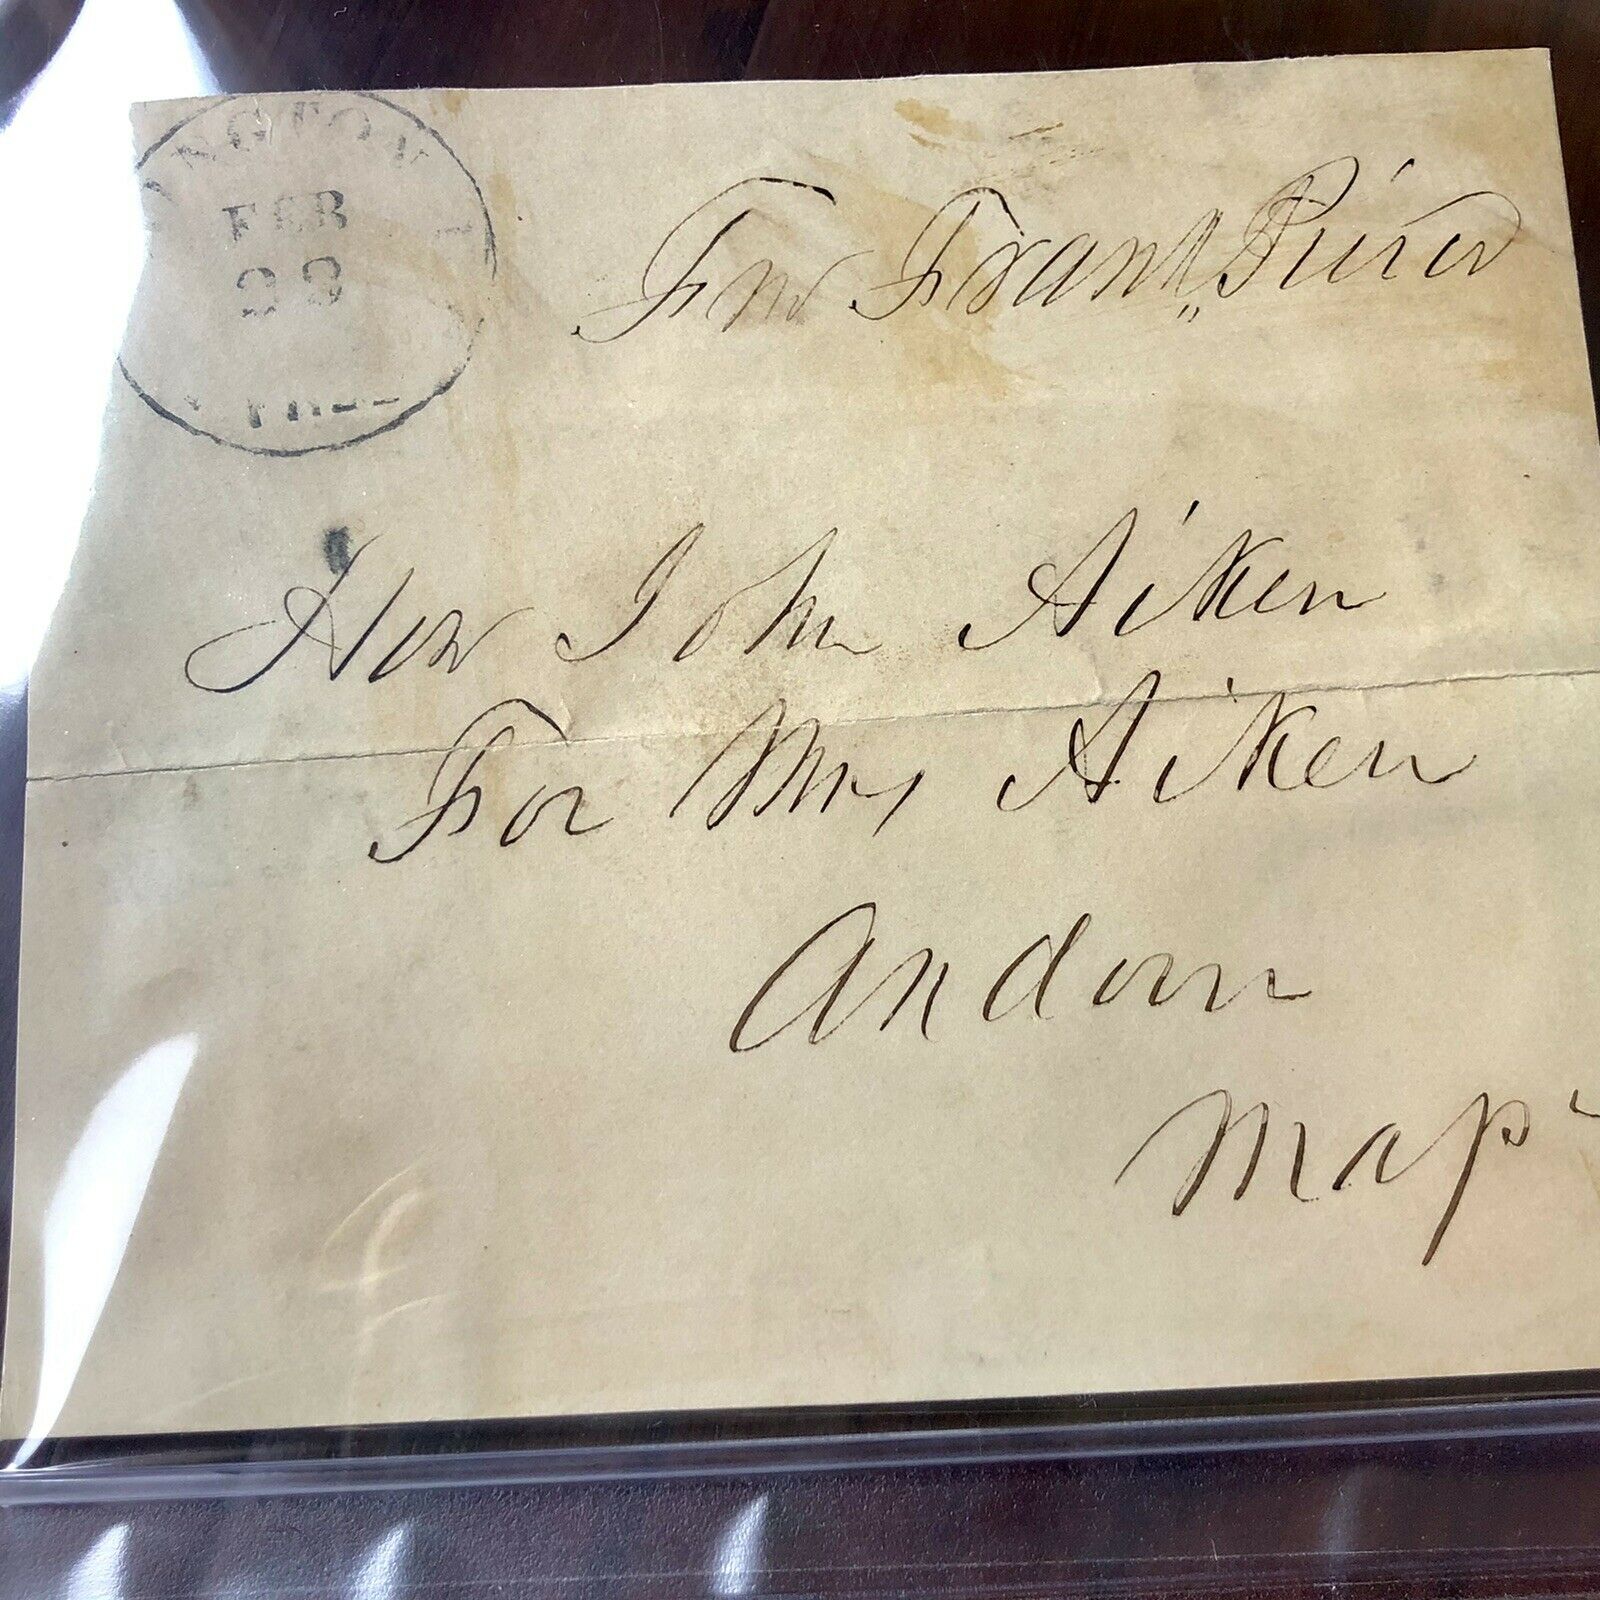 INGTON
FEB
FREE
Free Frank Pierce
Hon John Aiken
For Mrs Aiken
Andover
Mass